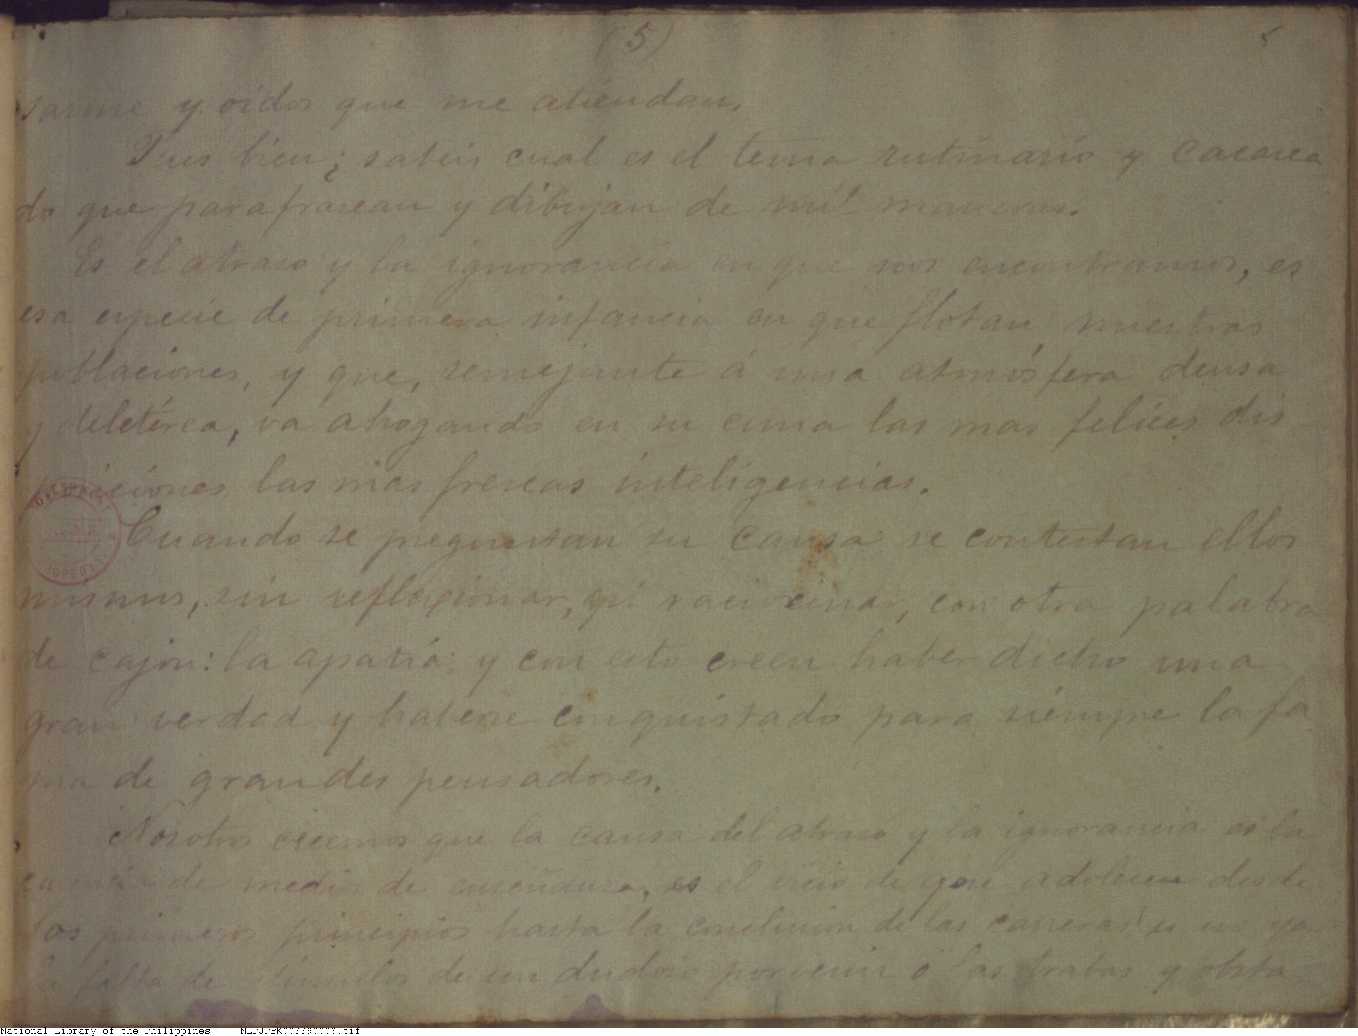 (5)
y oidos que me atiendan.
Pues bien; sabeis cual es el tema rutinario y cacarea
do que parafrasean y dibujan de mil maneras.
Es el atraso y la ignorancia en que nos encontramos, es
esa especie de primera infancia en que flotan nuestras
poblaciones, y que, semejante á una atmósfera densa
y deletérea, va ahogando en su cuna las mas felices dis
posiciones las mas frescas inteligencias.
Cuando se preguntan su causa se contestan ellos
mismos, sin reflexionar, ni raciocinar, con otra palabra
de cajon: la apatía; y con esto creen haber dicho una
gran verdad y haberse conquistado para siempre la fa
ma de grandes pensadores.
Nosotros creemos que la causa del atraso y la ignorancia es la
carencia de medios de enseñanza, es el vicio de que adolecen desde
los primeros principios hasta la conclusion de las carreras si no ya
la falta de estímulos de un dudoso porvenir ó las trabas y obstá
National Library of the Philippines